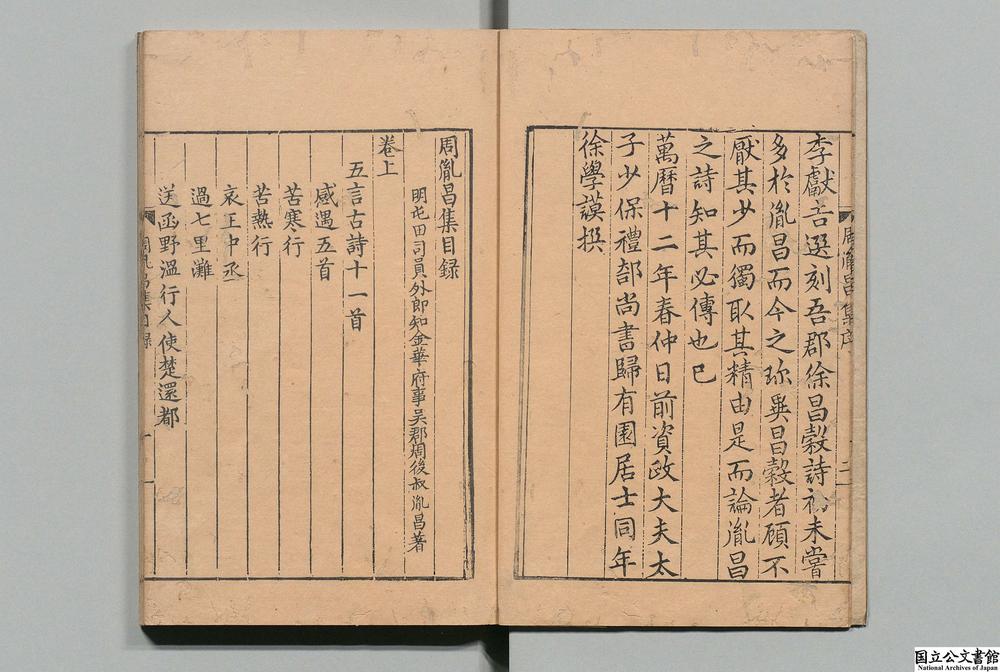 李獻吉選刻吾郡徐昌穀詩初未嘗
多於胤昌而今之珎異昌穀者顧不
厭其少而獨取其精由是而論胤昌
之詩知其必傳也已
萬曆十二年春仲日前資政大夫太
子少保禮部尚書歸有園居士同年
徐學謨撰
周胤昌集序
二
周胤昌集目録
明屯田司員外郎知金華府事吳郡周後叔胤昌著
卷上
五言古詩十一首
感遇五首
苦寒行
苦熱行
哀王中丞
過七里灘
送函野溫行人使楚還都
周胤昌集目錄
一
国立公文書館
National Archives of Japan